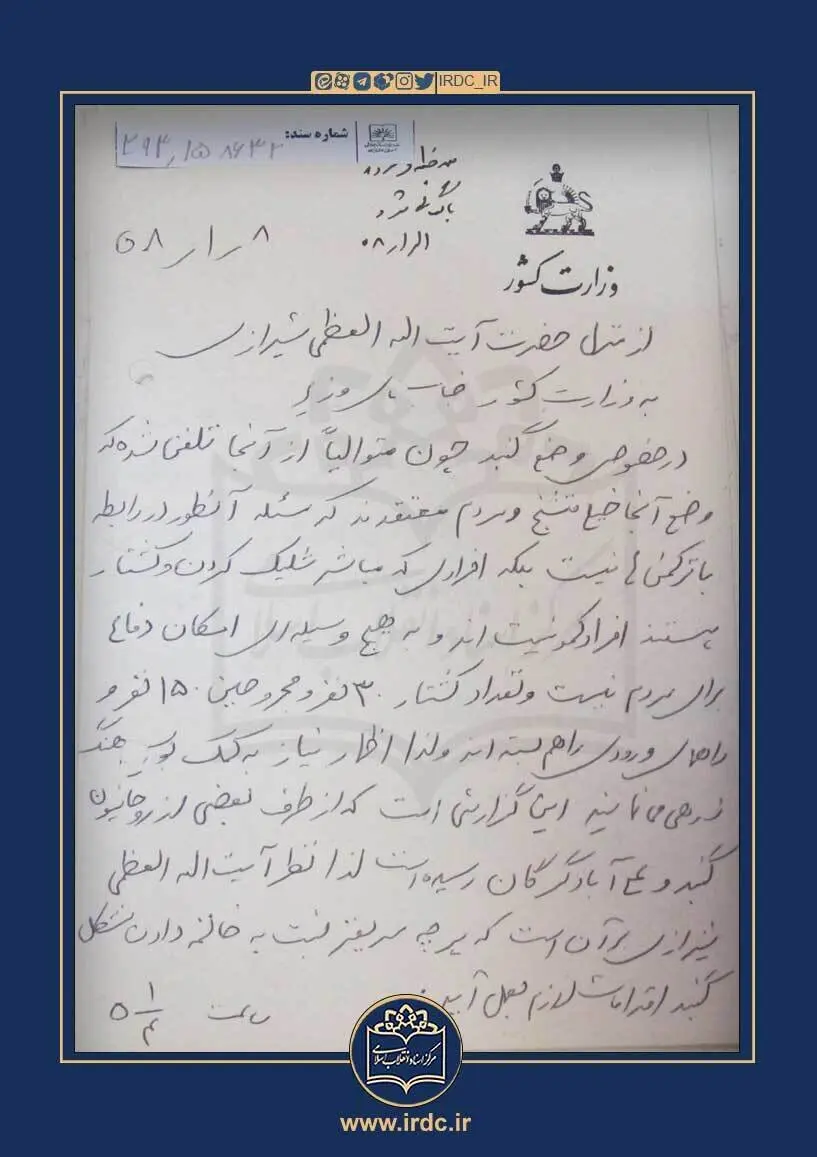 IRDC_IR
شماره سند:
وزارت کشور
۵۸/۱/۸
از منزل حضرت آیت اله العظمی شیرازی
به وزارت کشور جناب وزیر
در خصوص وضع گنبد چون متوالیاً از آنجا تلفن شده که
وضع آنجا خیلی متشنج و مردم معتقدند که مسئله آنطور در رابطه
با ترکمن ها نیست بلکه افرادی که مباشر شلیک کردن و کشتار
هستند افراد کمونیست اند و به هیچ وسیله ای امکان دفاع
برای مردم نیست و تعداد کشتار ۳۰ نفر و مجروحین ۱۵۰ نفر و
راههای ورودی را هم بسته اند ولذا اظهار نیاز به کمک
می نمایند این گزارشی است که از طرف بعضی از روحانیون
گنبد و علی آباد گرگان رسیده است لذا نظر آیت اله العظمی
شیرازی بر آن است که هر چه سریعتر نسبت به خاتمه دادن مشکل
گنبد اقدامات لازم بعمل آید.
ساعت
مرکز اسناد انقلاب اسلامی
www.irdc.ir